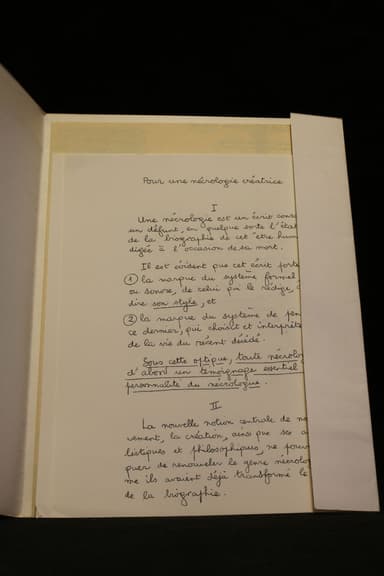 Pour une nécrologie créatrice
I
Une nécrologie est un écrit cons
un défunt, en quelque sorte l'état
de la biographie de cet être hum
digée à l'occasion de sa mort.
Il est évident que cet écrit porte
① la marque du système formel
ou sonore, de celui qui le rédige, c
dire son style, et
② la marque du système de pen
ce dernier, qui choisit et interprète
de la vie du récent décédé.
Sous cette optique, toute nécrolo
d'abord un témoignage essentiel
personnalité du nécrologue.
II
La nouvelle notion centrale de no
vement, la création, ainsi que ses a
listiques et philosophiques, ne pouv
quer de renouveler le genre nécrolo
me ils avaient déjà transformé le
de la biographie.